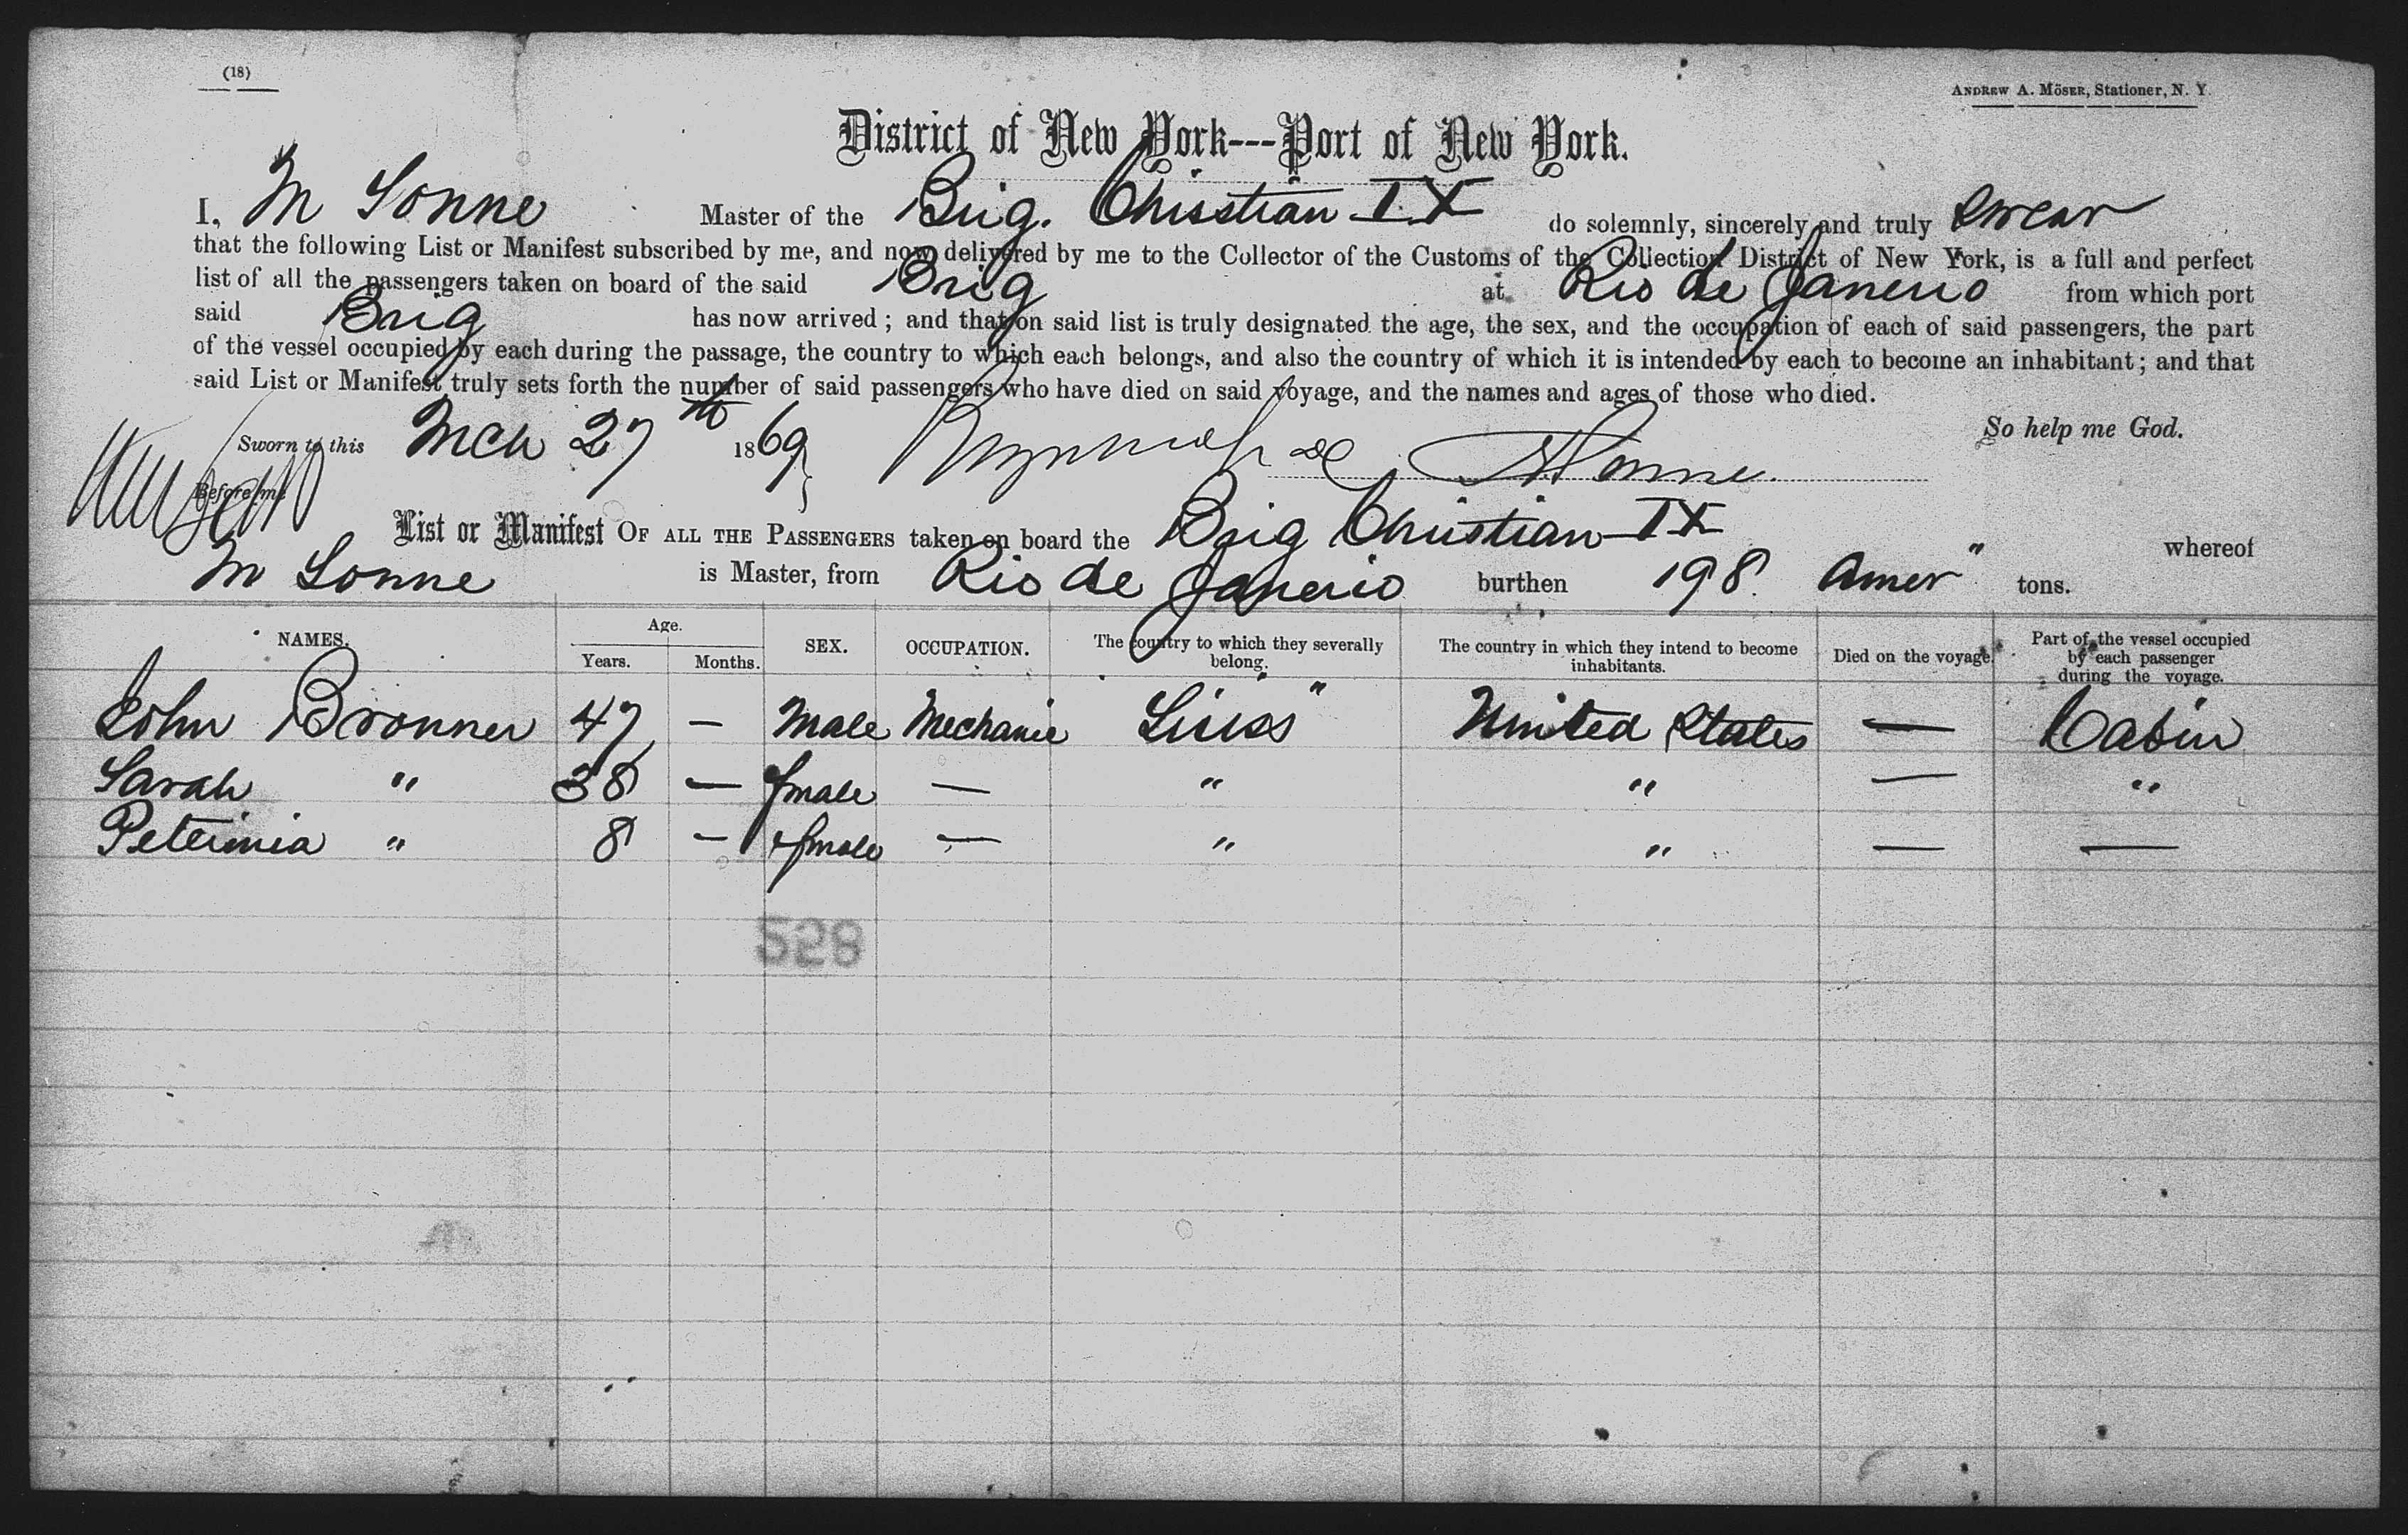 (18)
ANDREW A. MÖSER, Stationer, N. Y.
District of New York---Port of New York.
I, M Sonne Master of the Brig. Christian IX do solemnly, sincerely and truly swear
that the following List or Manifest subscribed by me, and now delivered by me to the Collector of the Customs of the Collection District of New York, is a full and perfect
list of all the passengers taken on board of the said Brig at Rio de Janerio from which port
said Brig has now arrived; and that on said list is truly designated the age, the sex, and the occupation of each of said passengers, the part
of the vessel occupied by each during the passage, the country to which each belongs, and also the country of which it is intended by each to become an inhabitant; and that
said List or Manifest truly sets forth the number of said passengers who have died on said voyage, and the names and ages of those who died.
So help me God.
Sworn to this Mch 27th 1869 Sonne
Before me
List or Manifest OF ALL THE PASSENGERS taken on board the Brig Christian IX whereof
M Sonne is Master, from Rio de Janerio burthen 198 Amer" tons.
NAMES. Age. Years. Months. SEX. OCCUPATION. The country to which they severally belong. The country in which they intend to become inhabitants. Died on the voyage. Part of the vessel occupied by each passenger during the voyage.
John Bronner 47 — Male Mechanic Swiss " United States — Cabin
Sarah " 38 — female — " " — "
Peterinia " 8 — female — " " — —
528